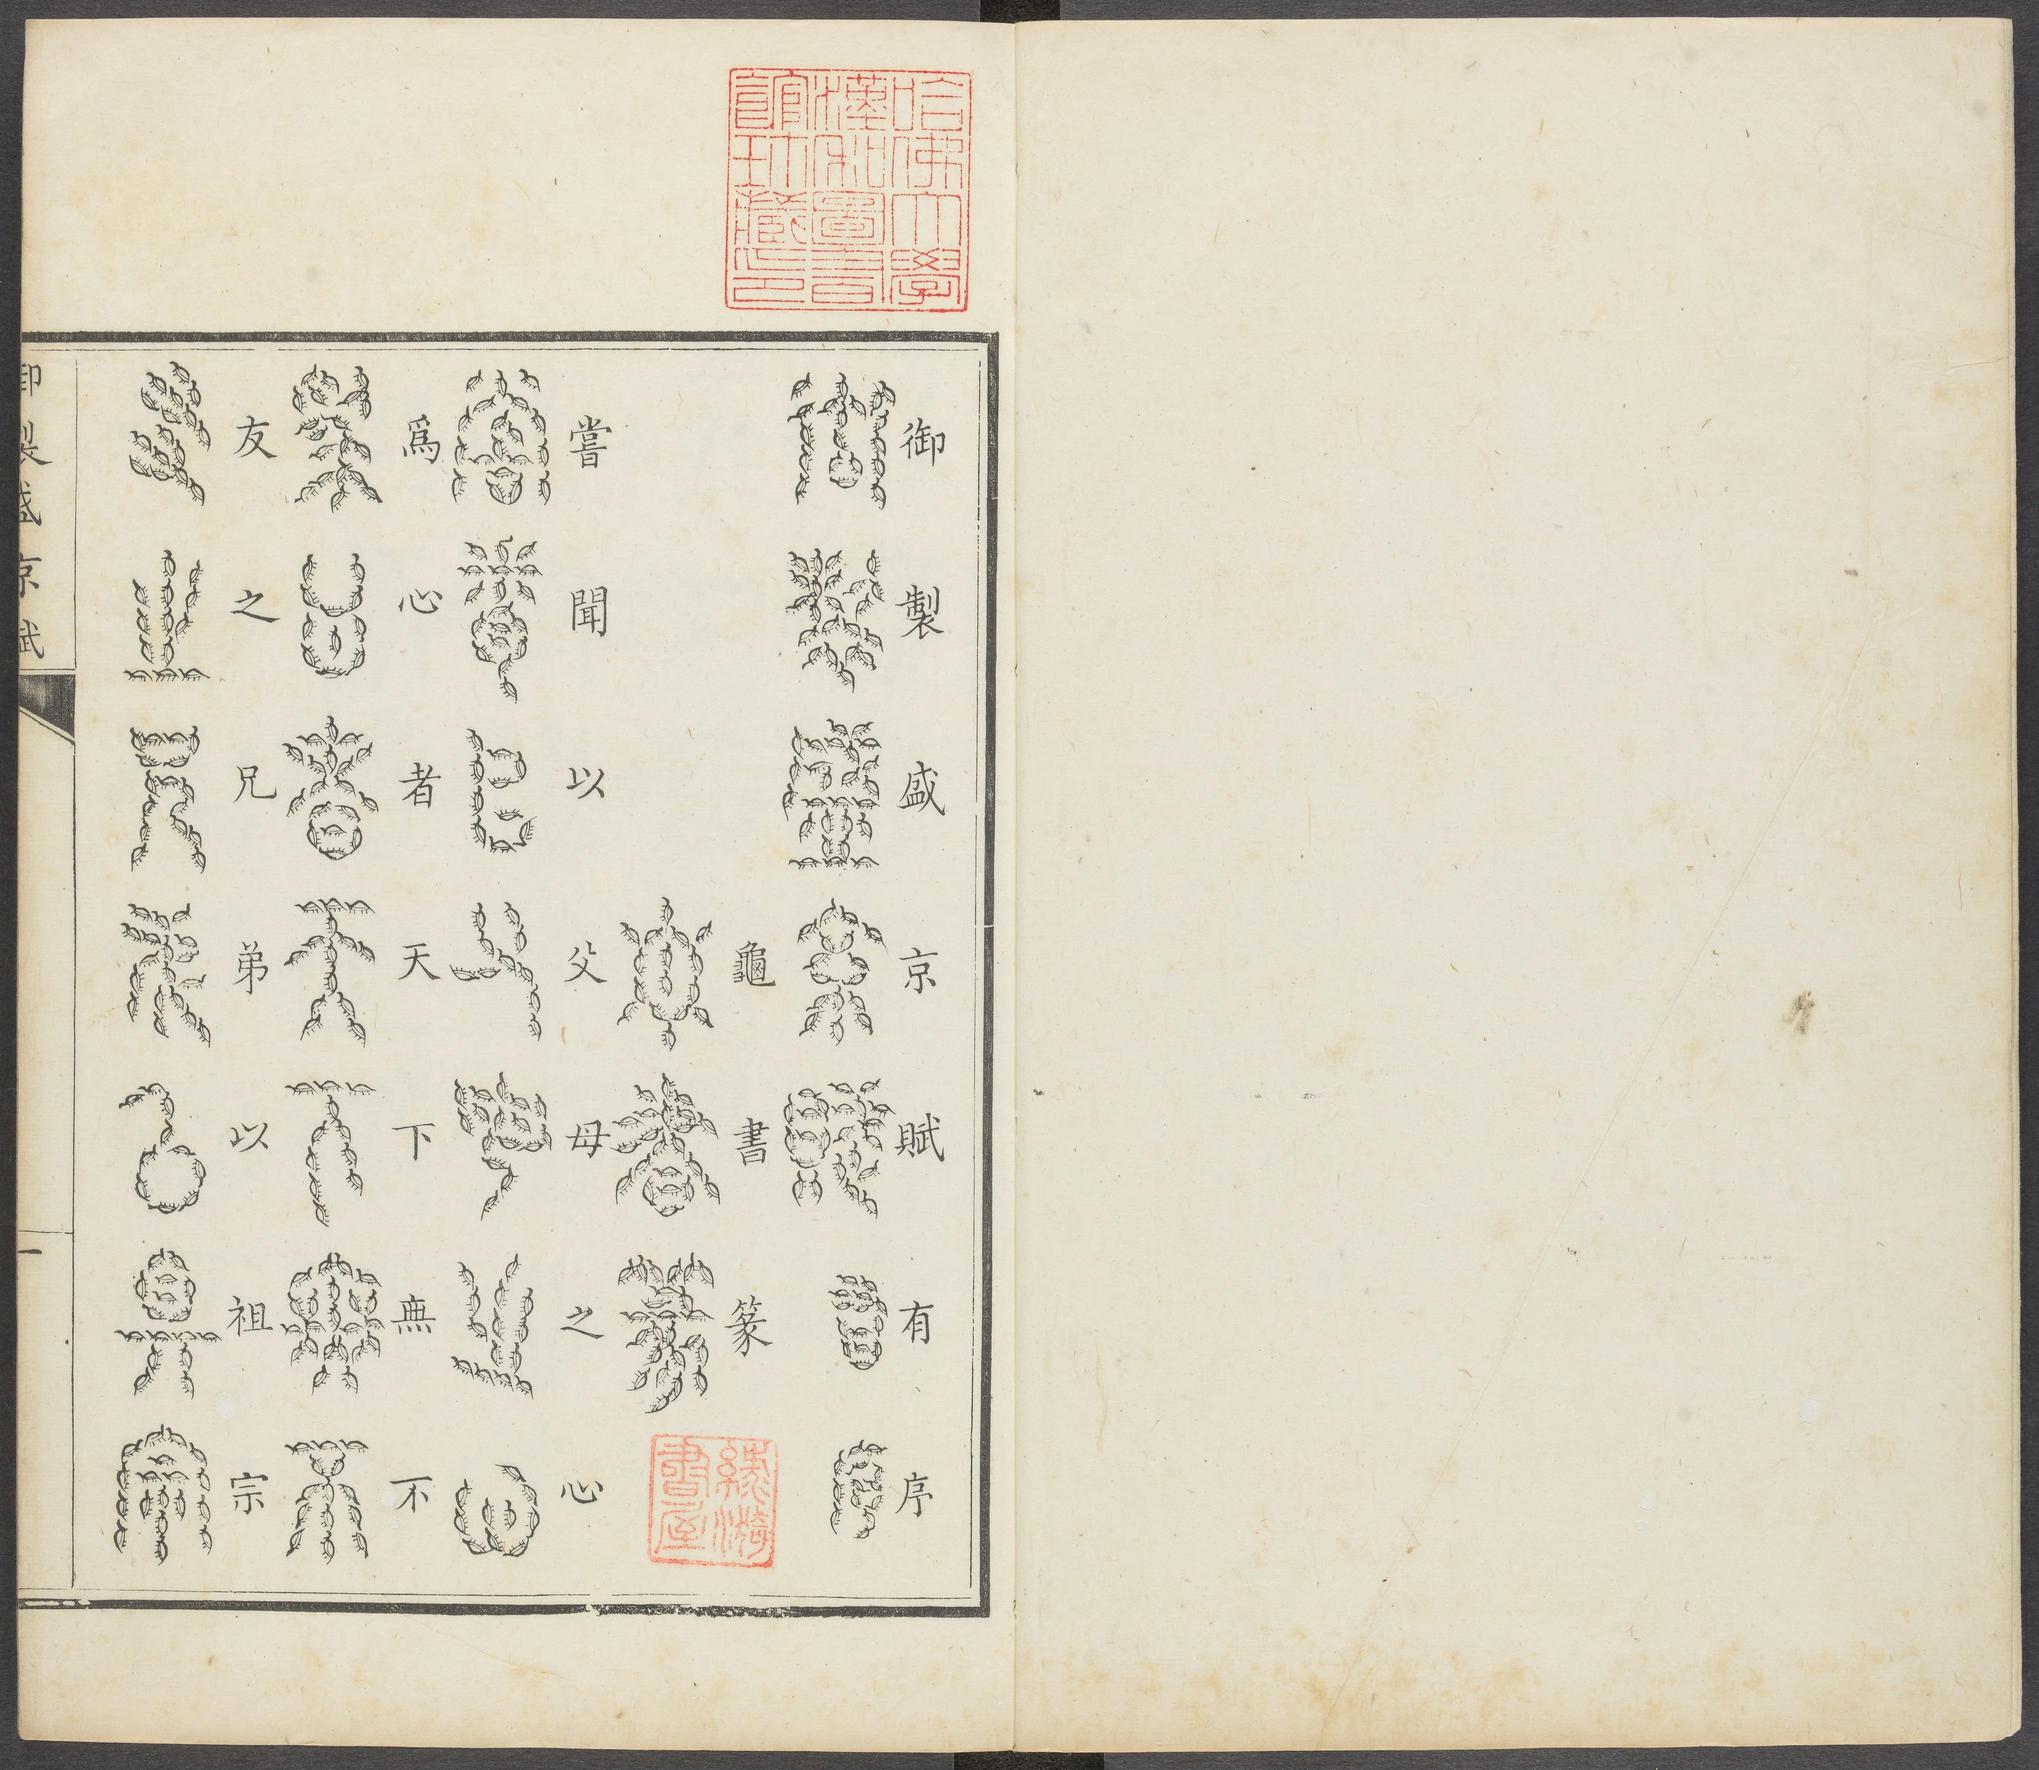 哈佛大學
漢和圖書
館珍藏印
御製盛京賦有序
龜書篆
漪
書屋
嘗聞以父母之心
爲心者天下無不
友之兄弟以祖宗
御製盛京賦
一